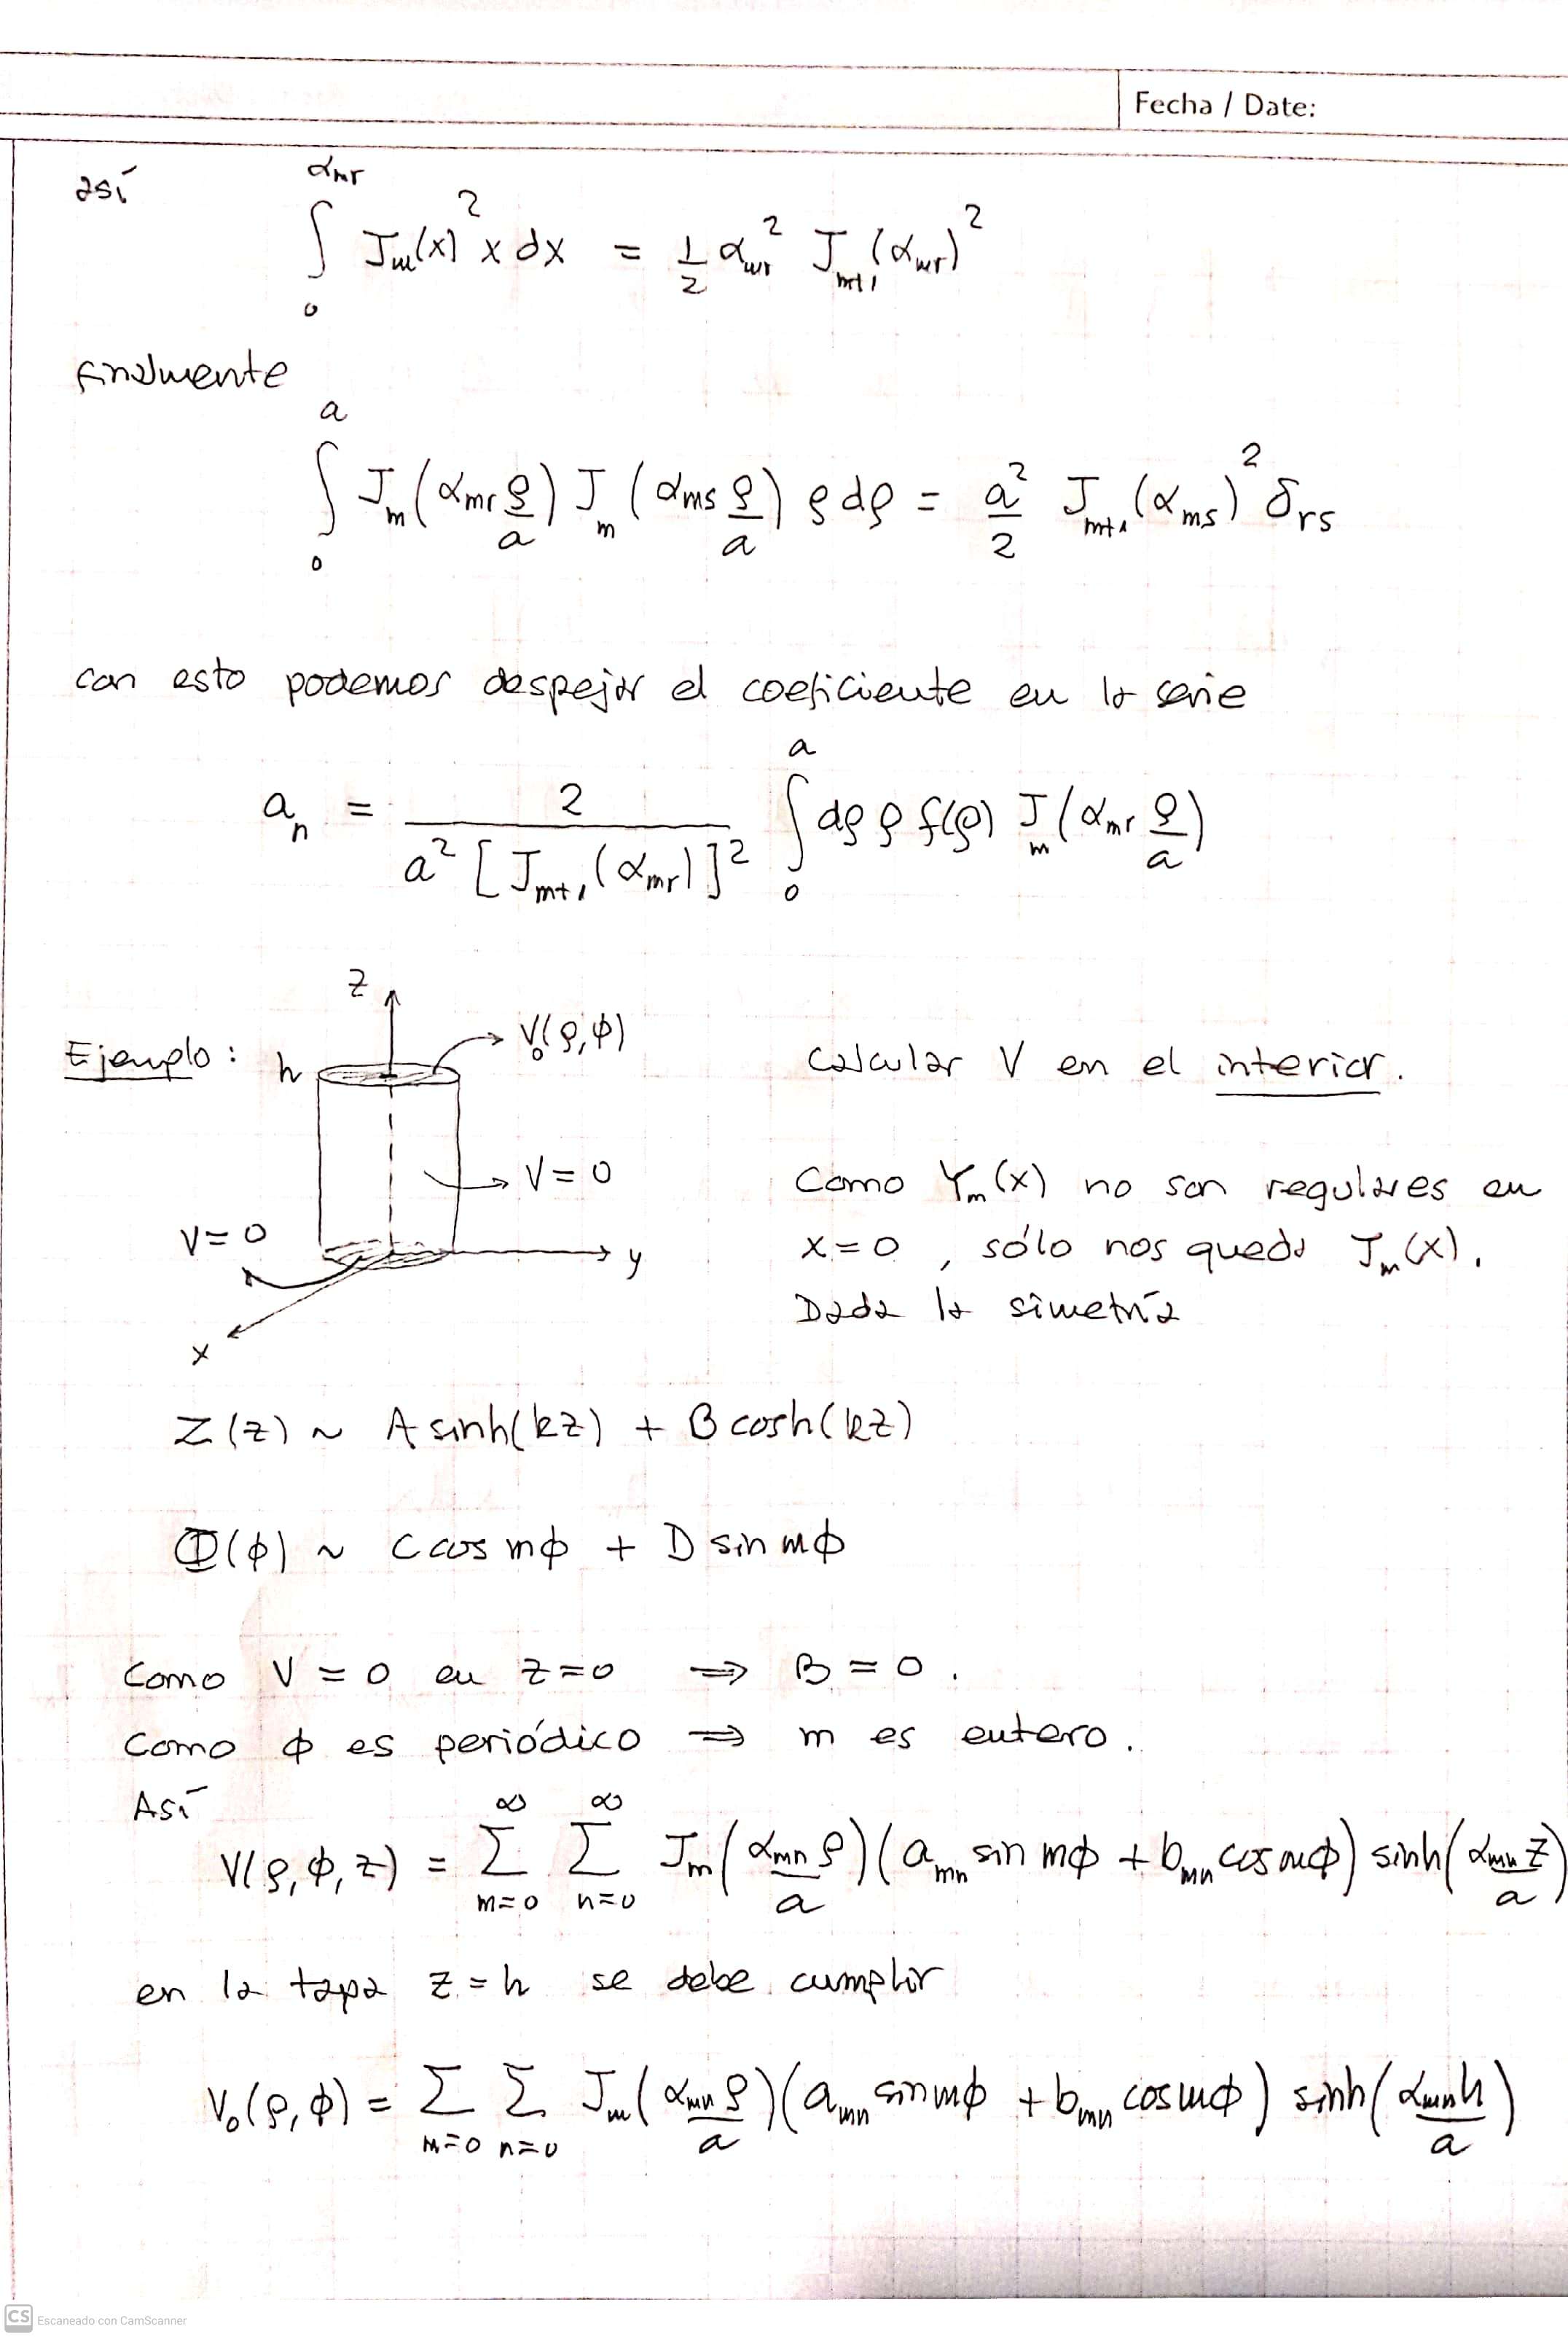 Fecha / Date:
así
∫₀^{αmr} Jm(x)² x dx = 1/2 αmr² Jm+1(αmr)²
finalmente
∫₀^a Jm(αmr ρ/a) Jm(αms ρ/a) ρ dρ = a²/2 Jm+1(αms)² δrs
con esto podemos despejar el coeficiente en la serie
an = 2 / a² [Jm+1(αmr)]² ∫₀^a dρ ρ f(ρ) Jm(αmr ρ/a)
Ejemplo:
z
h
V₀(ρ,φ)
V=0
V=0
y
x
Calcular V en el interior.
Como Ym(x) no son regulares en
x=0, sólo nos queda Jm(x).
Dada la simetría
Z(z) ~ A sinh(kz) + B cosh(kz)
Φ(φ) ~ C cos mφ + D sin mφ
Como V = 0 en z=0 ⇒ B = 0.
Como φ es periódico ⇒ m es entero.
Así
V(ρ,φ,z) = Σ_{m=0}^∞ Σ_{n=0}^∞ Jm(αmn ρ/a)(amn sin mφ + bmn cos mφ) sinh(αmn z/a)
en la tapa z=h se debe cumplir
V₀(ρ,φ) = Σ_{m=0} Σ_{n=0} Jm(αmn ρ/a)(amn sin mφ + bmn cos mφ) sinh(αmn h/a)
CS Escaneado con CamScanner